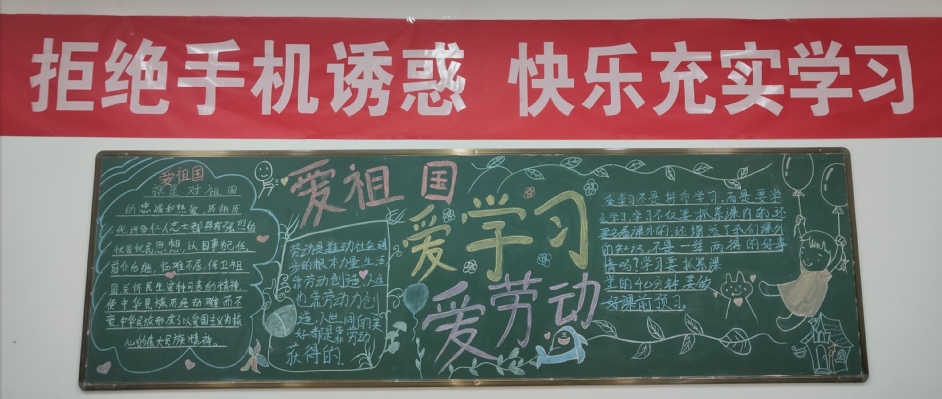 拒绝手机诱惑 快乐充实学习
爱祖国
就是对祖国
的忠诚和热爱。历朝历
代,许多仁人志士都具有强烈的
忧国忧民思想,以国事为己任,
前仆后继,临难不屈,保卫祖
国关怀民生,这种可贵的精神,
使中华民族历经劫难而不
衰。
爱祖国
爱学习
爱劳动
劳动是推动社会进
步的根本力量,生活
靠劳动创造,人生
也靠劳动力创
造,人世间的美
好都是靠劳动
获得的。
爱学习不是拼命学习,而是要学
么学习,学习不仅要抓紧课内的,还
要多看课外的,还增长了我们课外
的知识,不是一举两得的好事
情吗?学习要抓紧课
堂的40分钟,要做
好课前预习。